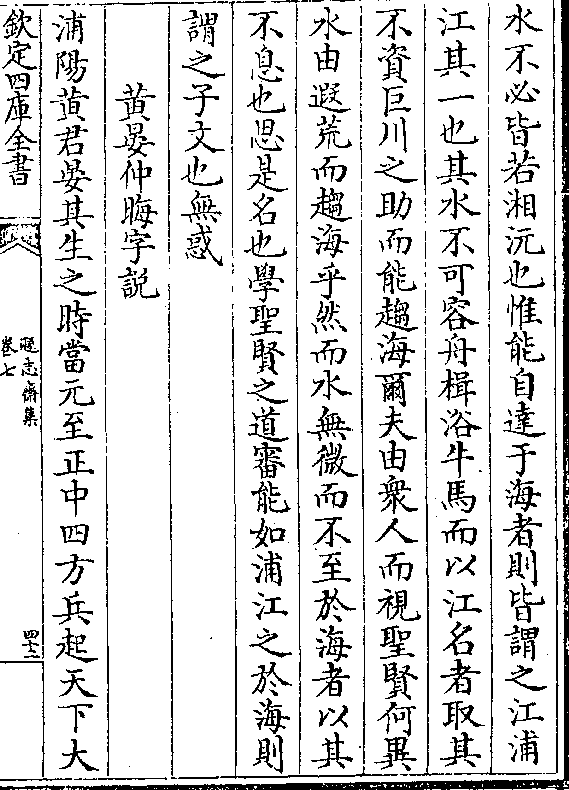 水不必皆若湘沅也惟能自達于海者則皆謂之江浦
江其一也其水不可容舟楫浴牛馬而以江名者取其
不資巨川之助而能趨海爾夫由衆人而視聖賢何異
水由遐荒而趨海乎然而水無微而不至於海者以其
不息也思是名也學聖賢之道審能如浦江之於海則
謂之子文也無惑
黄晏仲晦字説
浦陽黄君晏其生之時當元至正中四方兵起天下大
欽定四庫全書
遜志齋集
卷七
四十三